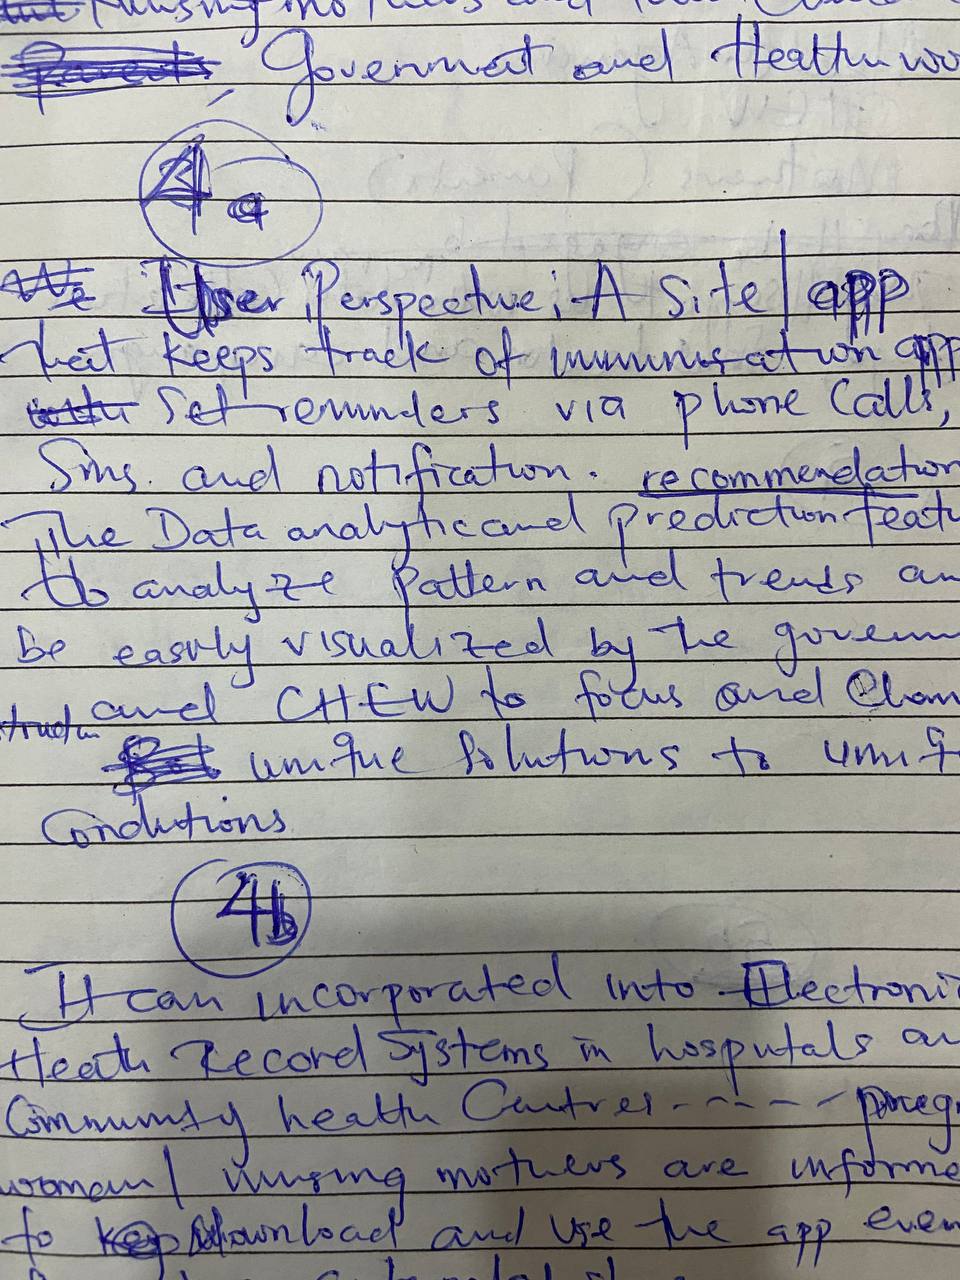 Nursing mothers and
Government and Health
4a
User Perspective; A site/app
that keeps track of immunisation app
Set reminders via phone Calls,
Sms. and notification. recommendation
The Data analytic and prediction
to analyze pattern and trends
be easily visualized by the
and CHEW to focus and
unique Solutions to
Conditions
4b
It can incorporated into Electronic
Heath Record Systems in hospitals
Community health Centres ----- 
woman/ nursing mothers are
to download and use the app even